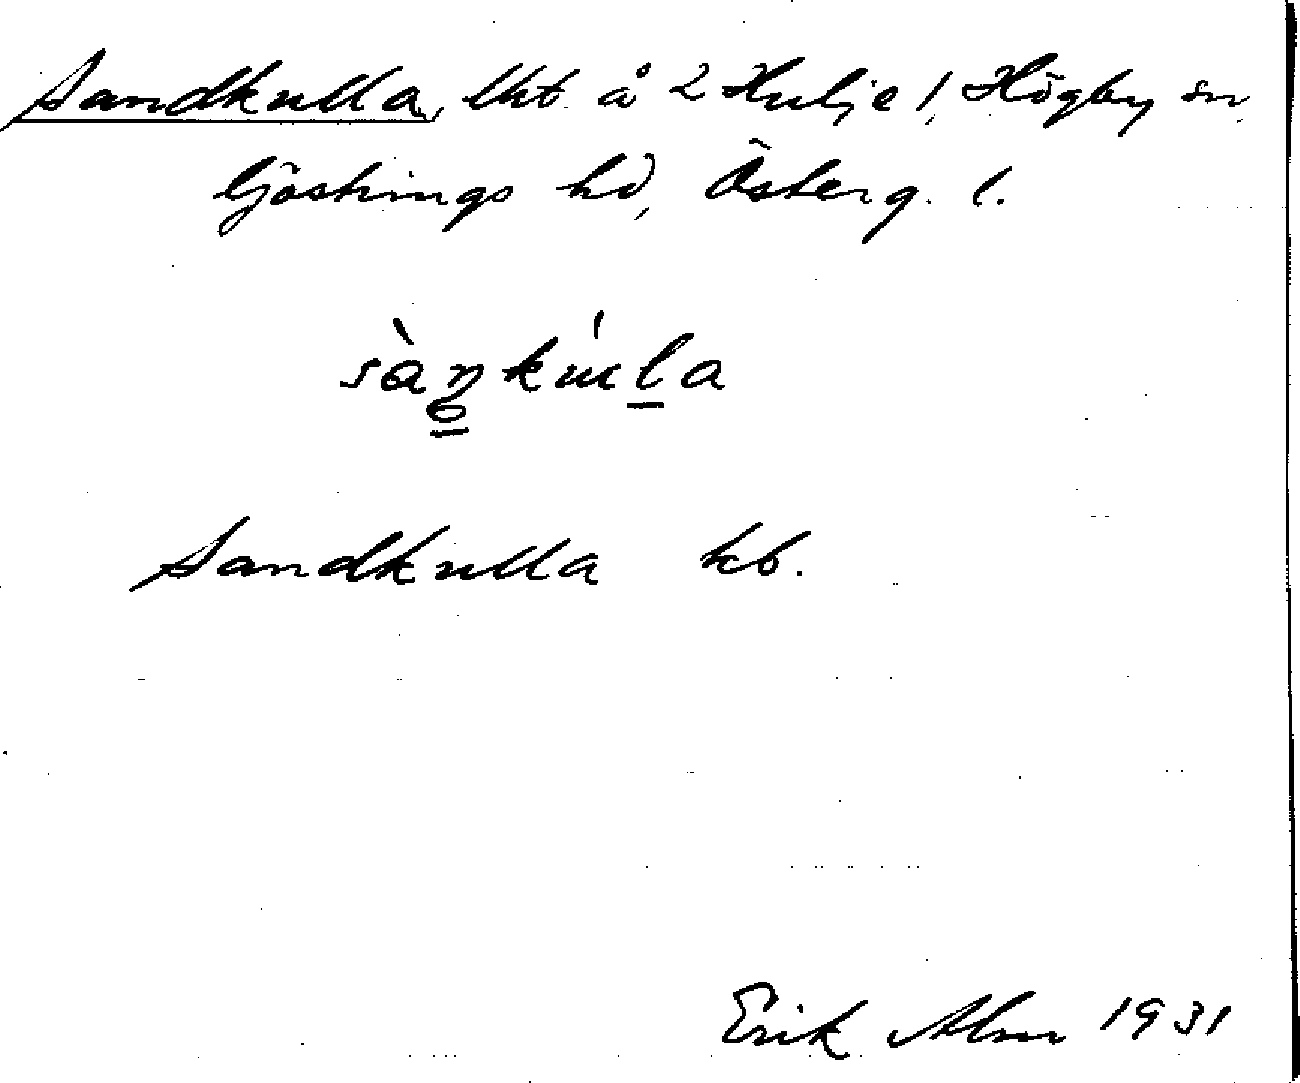 Sandkulla, lht å 2 Hulje 1, Högby sn,
Göstrings hd, Österg. l.
sàn̥kúl̲a
Sandkulla kb.
Erik Alm 1931